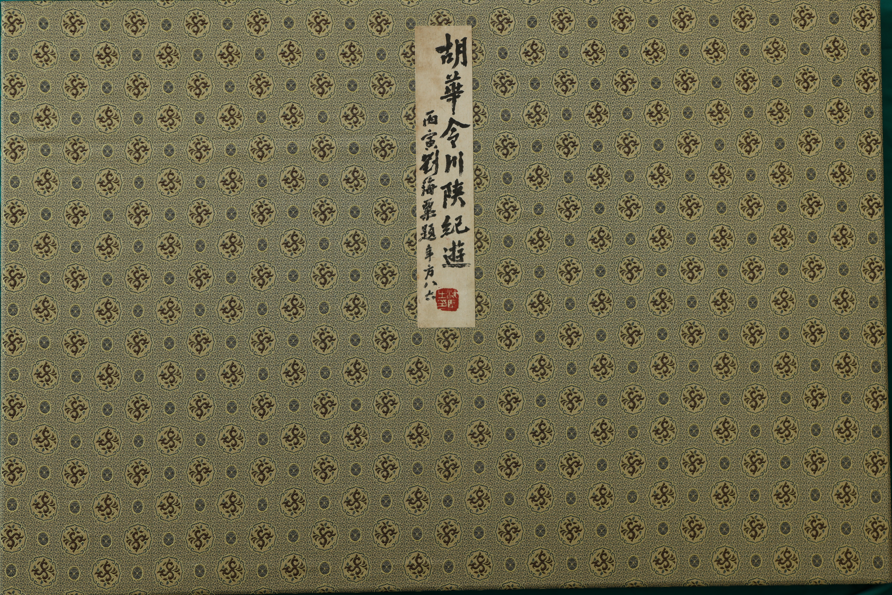 胡華令川陝紀遊
丙寅劉海粟題年方八六